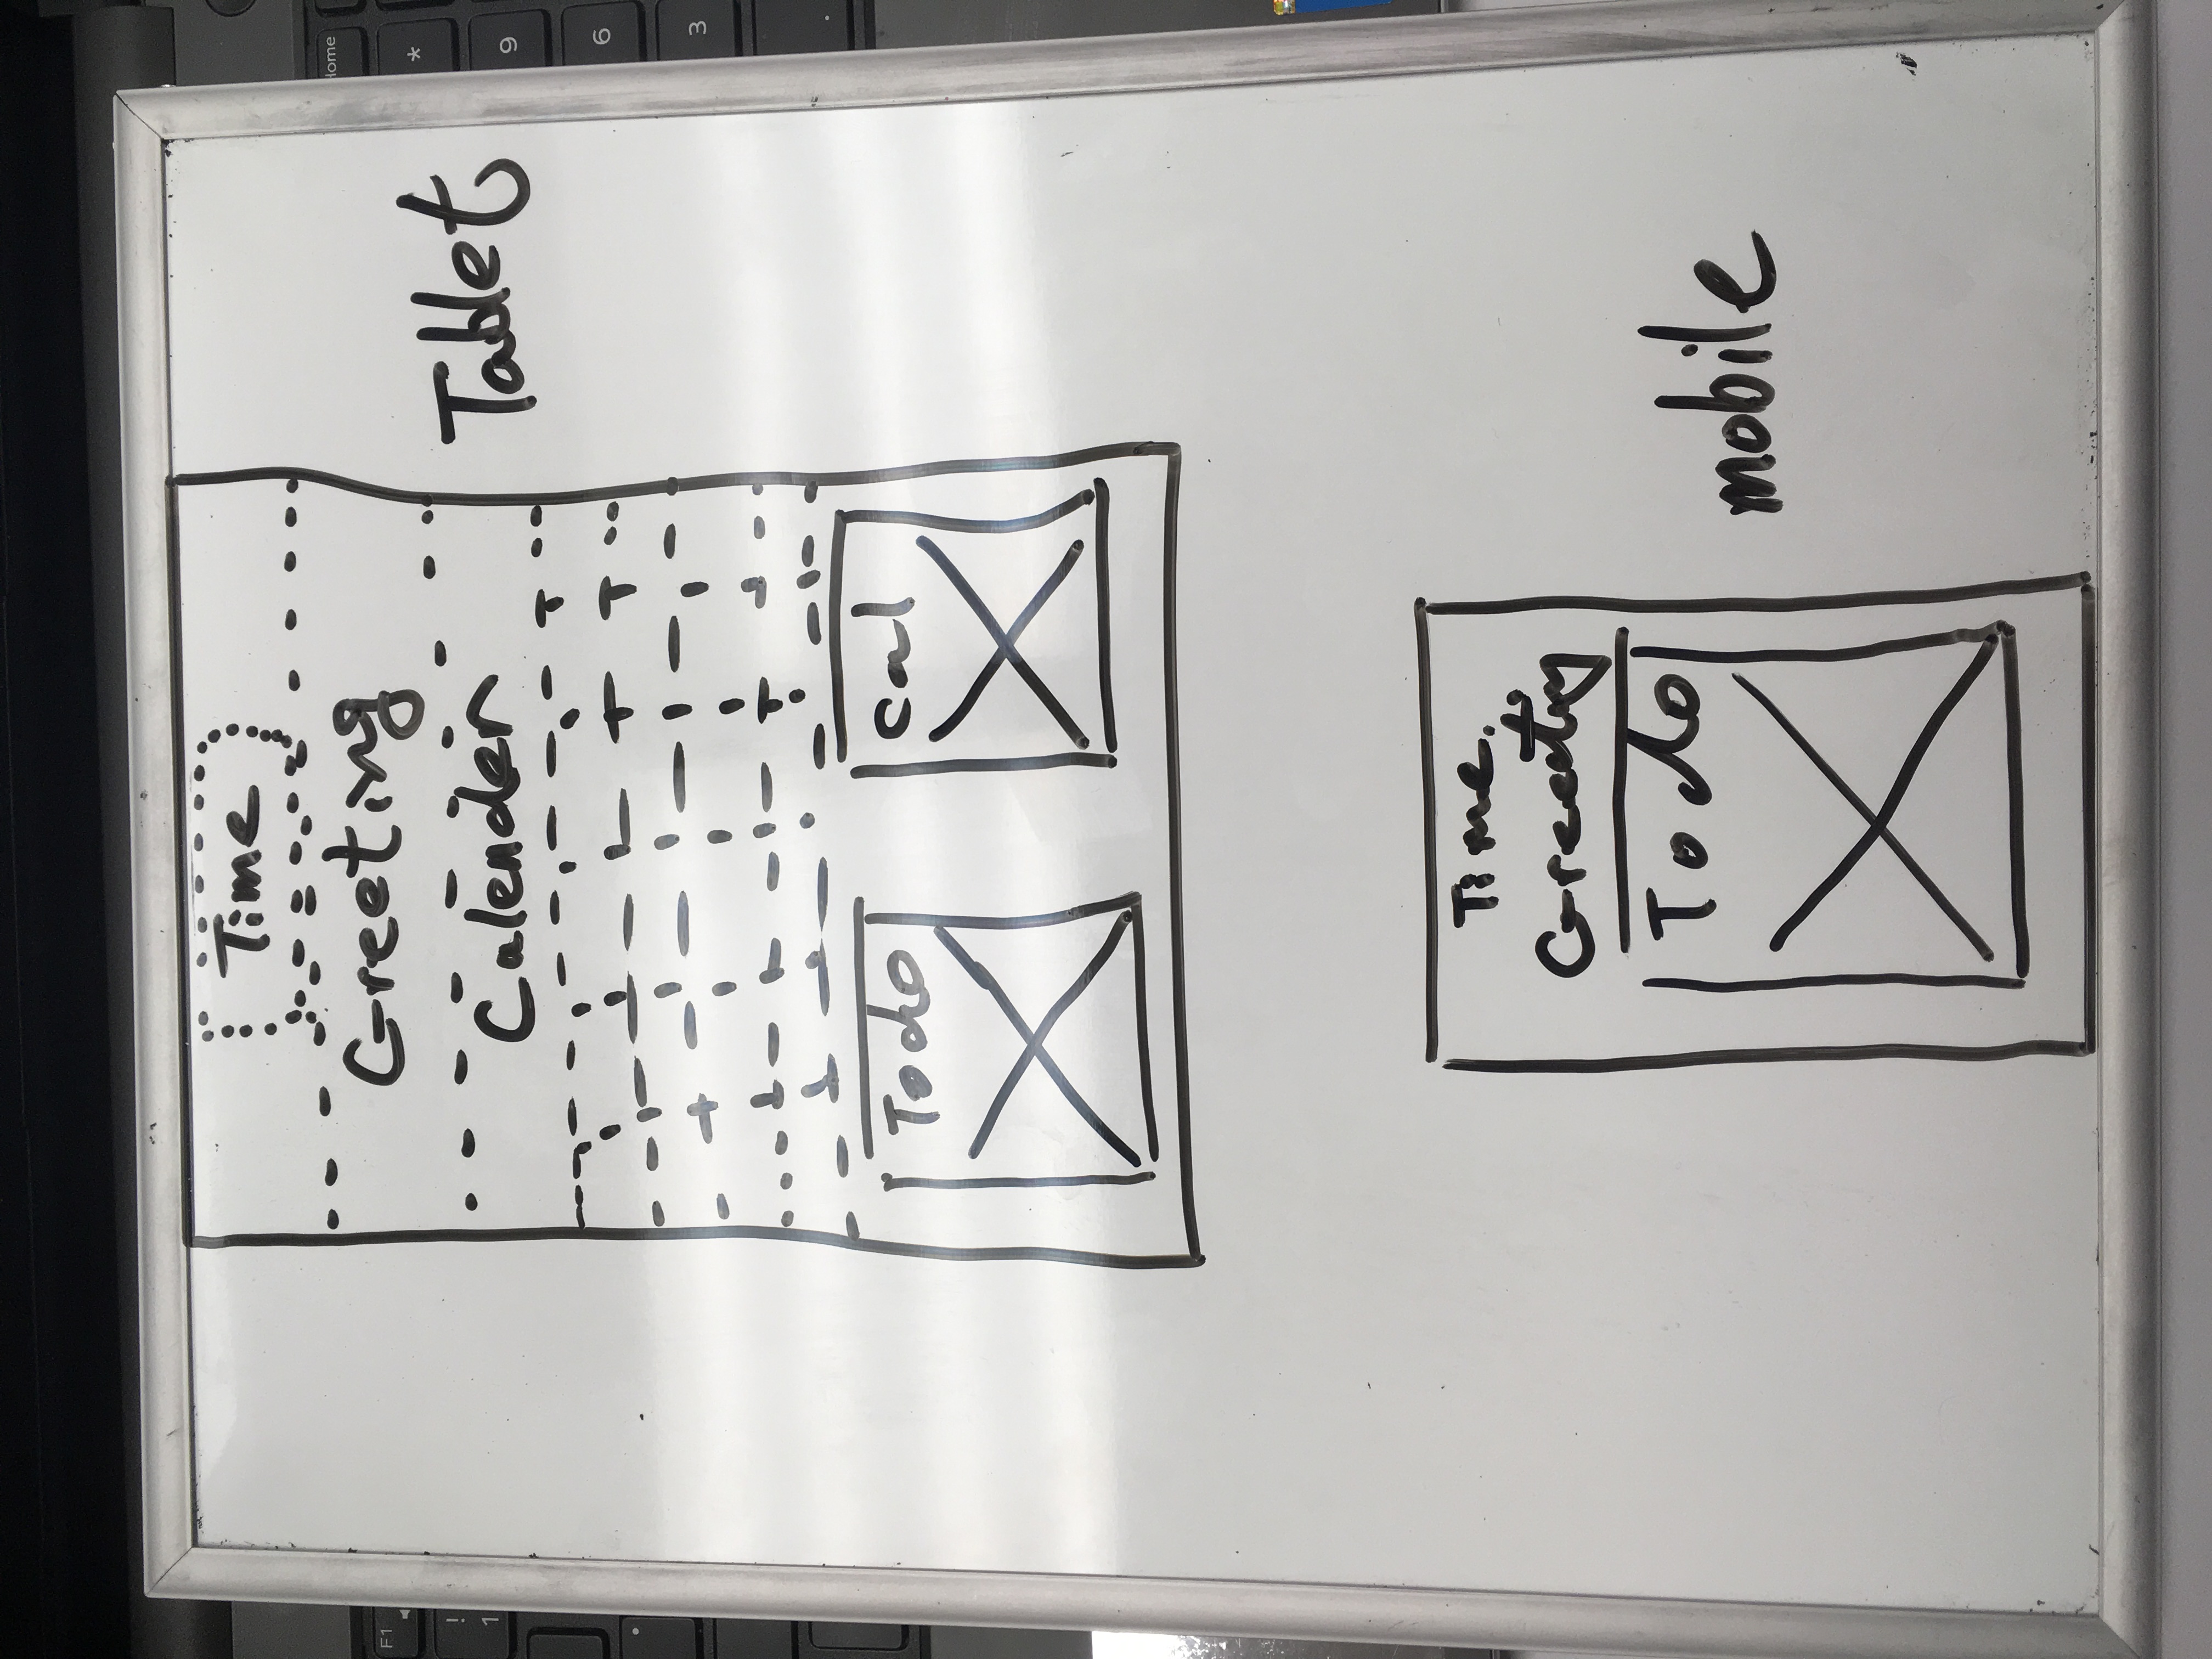 Time
Greeting
Calender
Tablet
Todo
Cal
Time.
Greeting
Todo
mobile
F1
!
1
Home
*
9
6
3
.